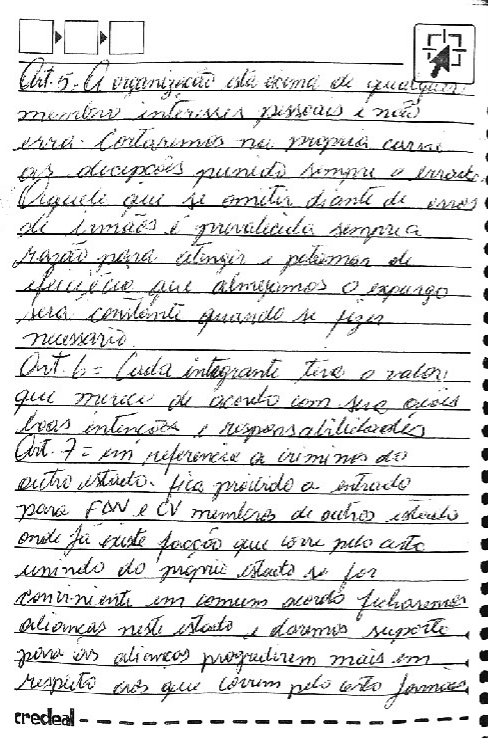 Art. 5 - A organização está acima de qualquer
membro interesses pessoais e não
erra. Cortaremos na propria carne
as decepções punido sempre o errado
Aquele que se omitir diante de erros
de irmãos e prevalecida sempre a
razão para atingir e patamar de
que almejamos o expurgo
será constante quando se fizer
necessario.
Art. 6 = Cada integrante tera o valor
que merece de acordo com seu
boas intenções e responsabilidades
Art. 7 = em referencia a criminos do
outro estado. fica proibido a entrada
para FDN e CV membros de outros estado
onde já existe facção que corre pelo certo
unindo do proprio estado se for
conviniente em comum acordo fecharemos
alianças neste estado e daremos suporte
para as alianças progredirem mais em
respeito aos que correm pelo certo
credeal